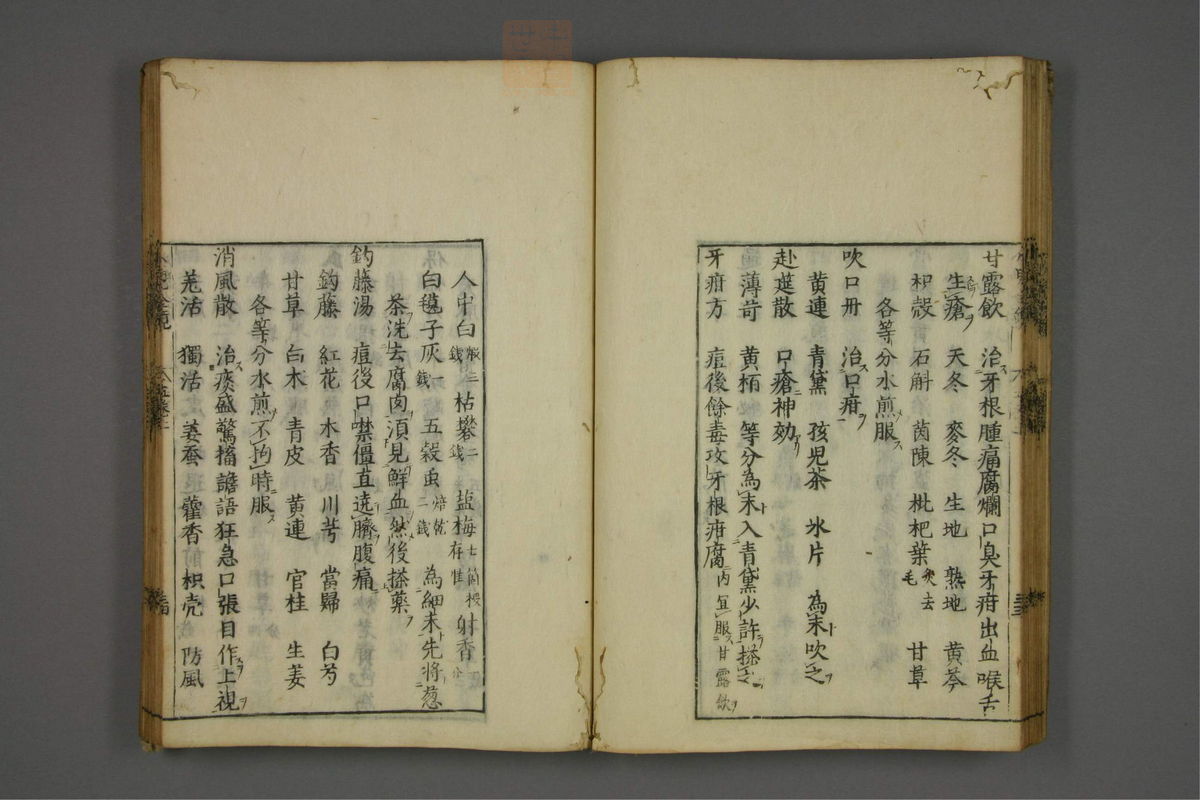 甘露飲　治牙根腫痛腐爛口臭牙疳出血喉舌
生瘡　天冬　麥冬　生地　熟地　黄芩
枳殼　石斛　茵陳　枇杷葉炙去毛　甘草
各等分水煎服
吹口丹　治口疳
黄連　青黛　孩児茶　氷片　為末吹之
赴莚散　口瘡神効
薄苛　黄栢　等分為末入青黛少許搽之
牙疳方　痘後餘毒攻牙根疳腐内宜服甘露飲
人中白煅三錢　枯礬二錢　塩梅七箇燒存性　射香
白毯子灰一錢　五穀虫焙乾二錢　為細末先將葱
茶洗去腐肉須見鮮血然後搽藥
鈎藤湯　痘後口噤僵直遶臍腹痛
鈎藤　紅花　木香　川芎　當歸　白芍
甘草　白木　青皮　黄連　官桂　生姜
各等分水煎不拘時服
消風散　治痰盛驚搐譫語狂急口張目作上視
羗活　獨活　姜蚕　藿香　枳壳　防風